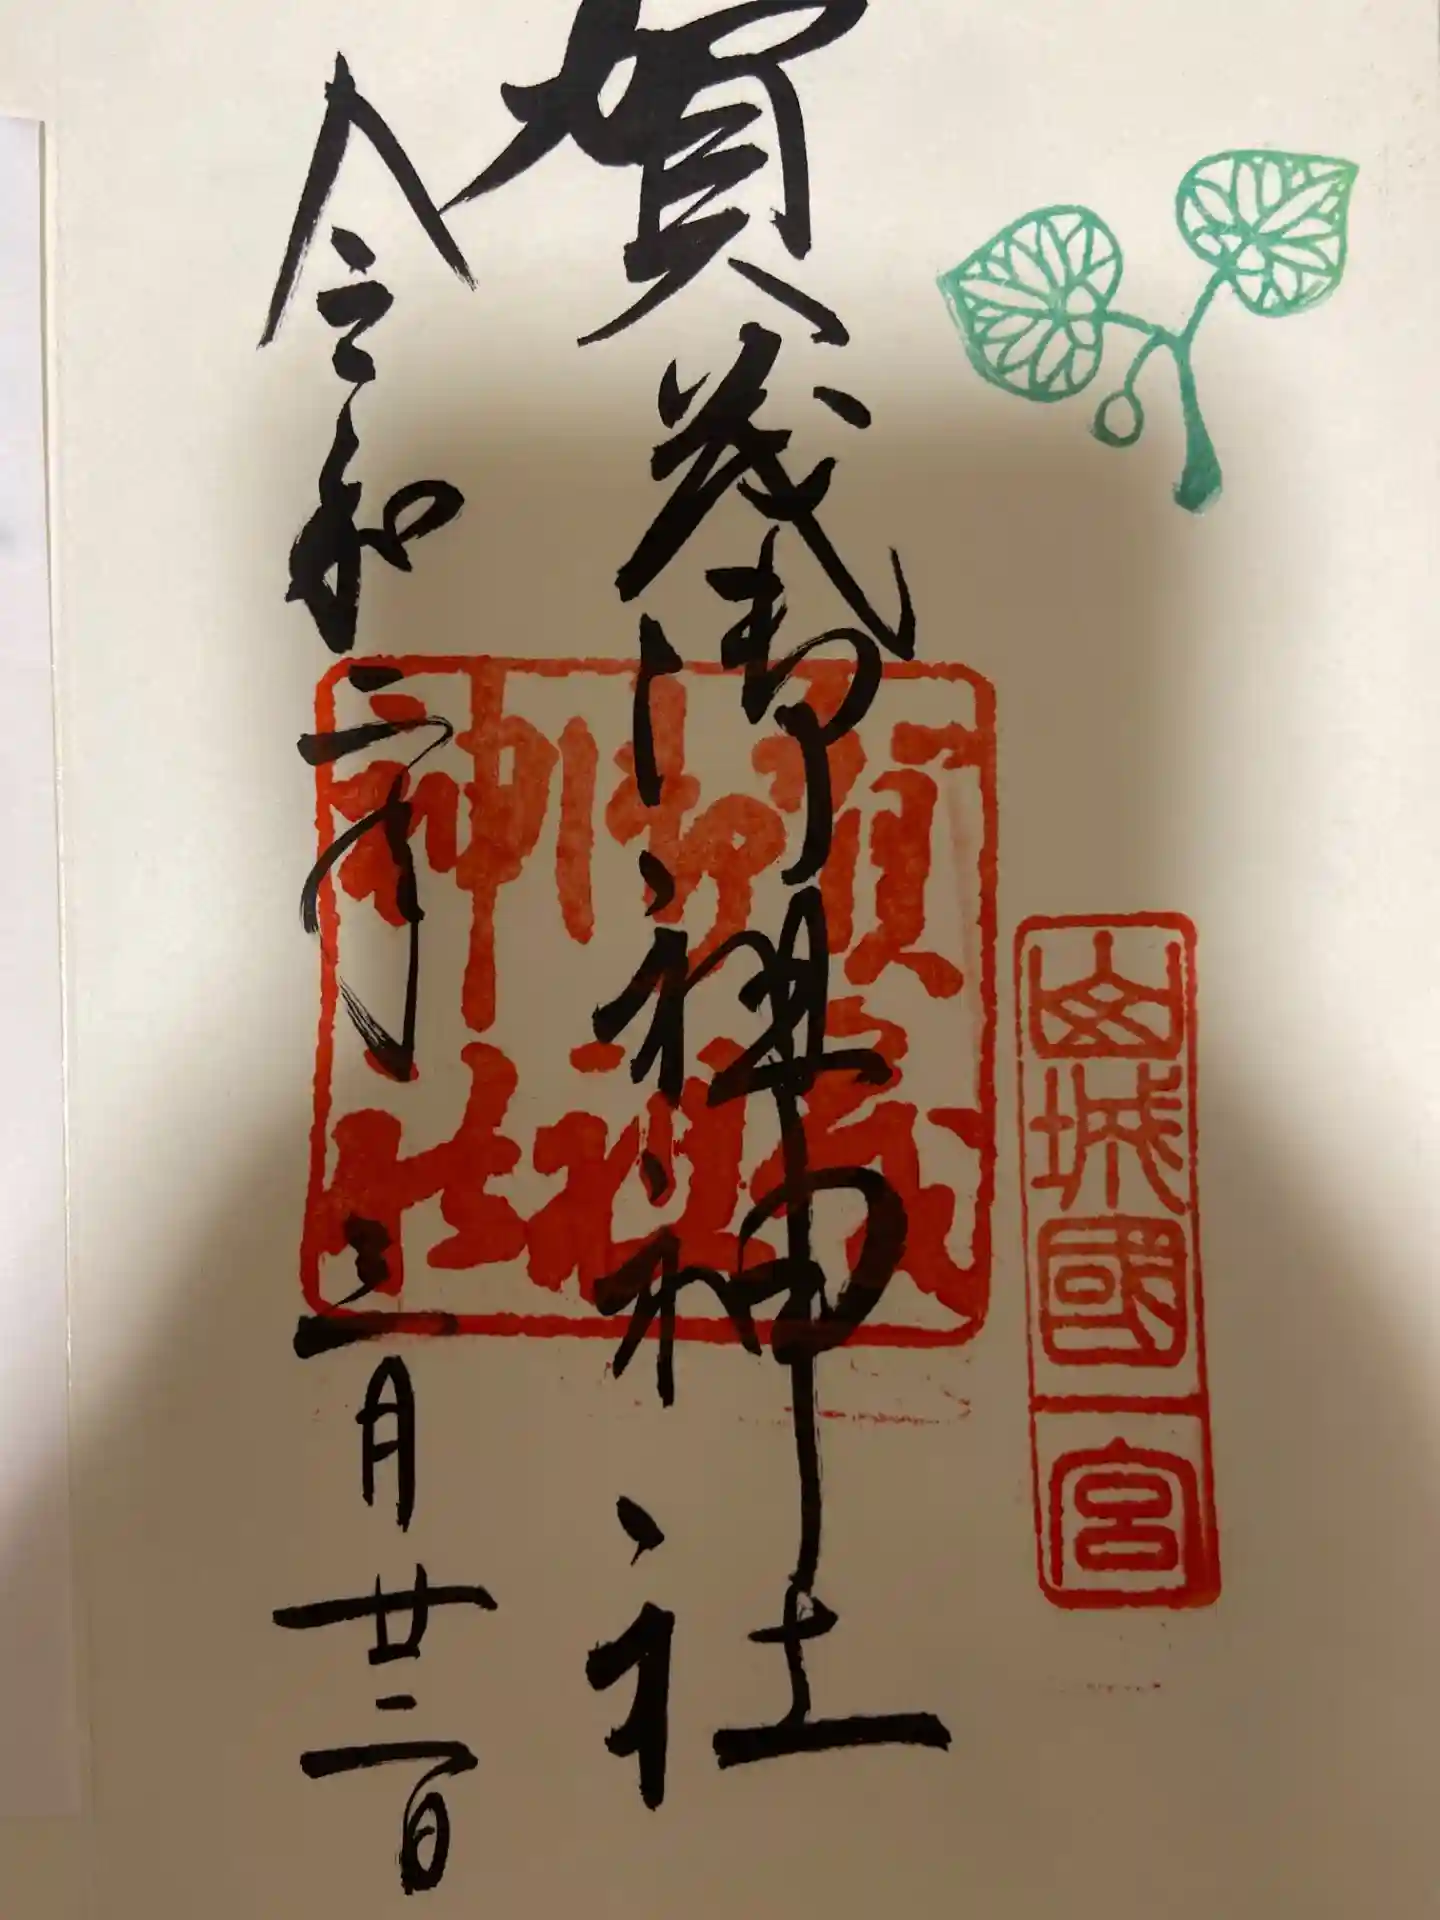 山城國
一宮
賀茂御祖神社
賀茂
御祖
神社
令和二年三月廿二日